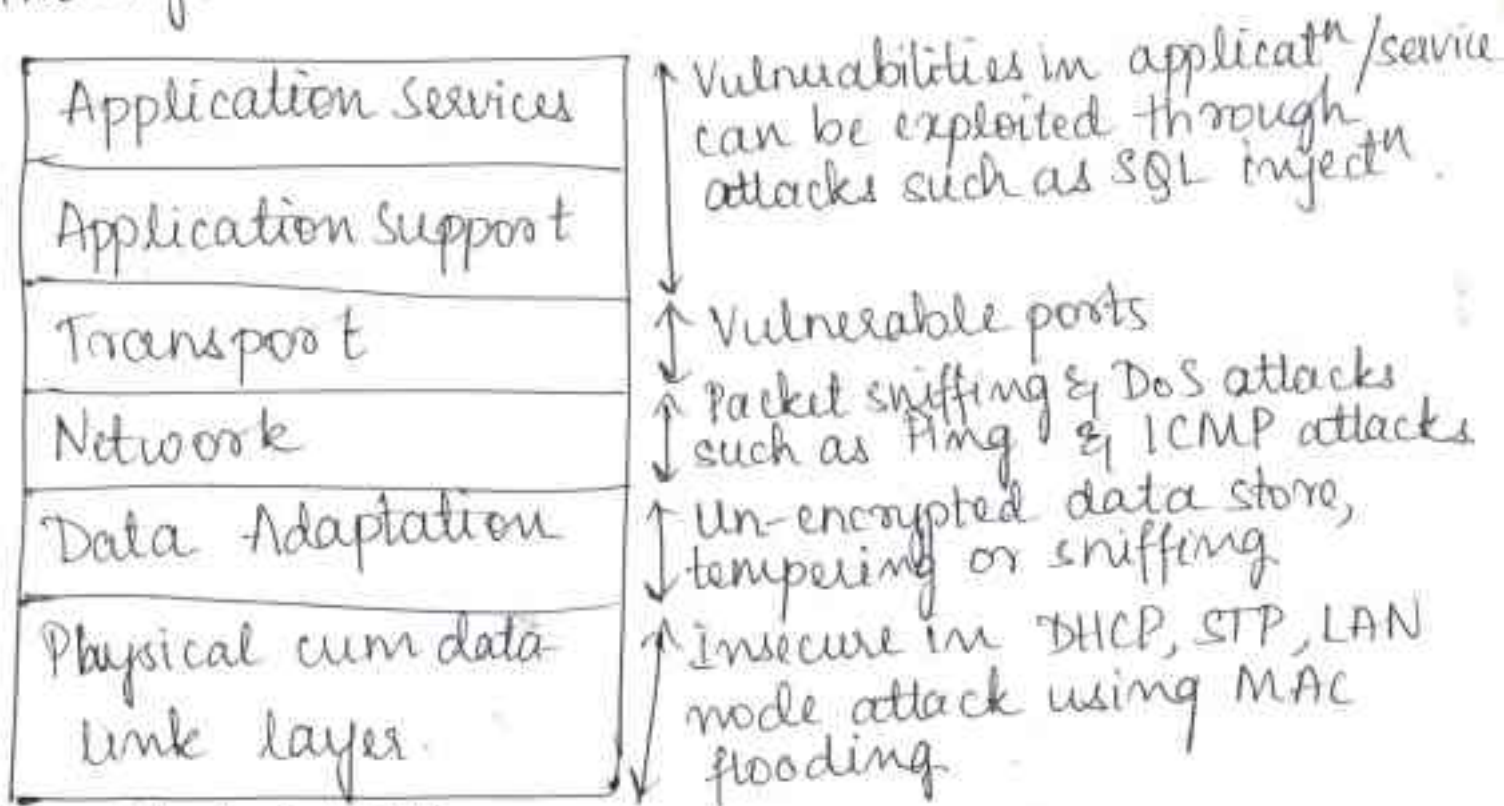 Application Services
Application Support
Transport
Network
Data Adaptation
Physical cum data
link layer.
Vulnerabilities in applicatn/service
can be exploited through
attacks such as SQL injectn.
Vulnerable ports
Packet sniffing & DoS attacks
such as Ping & ICMP attacks
Un-encrypted data store,
tempering or sniffing
Insecure in DHCP, STP, LAN
node attack using MAC
flooding